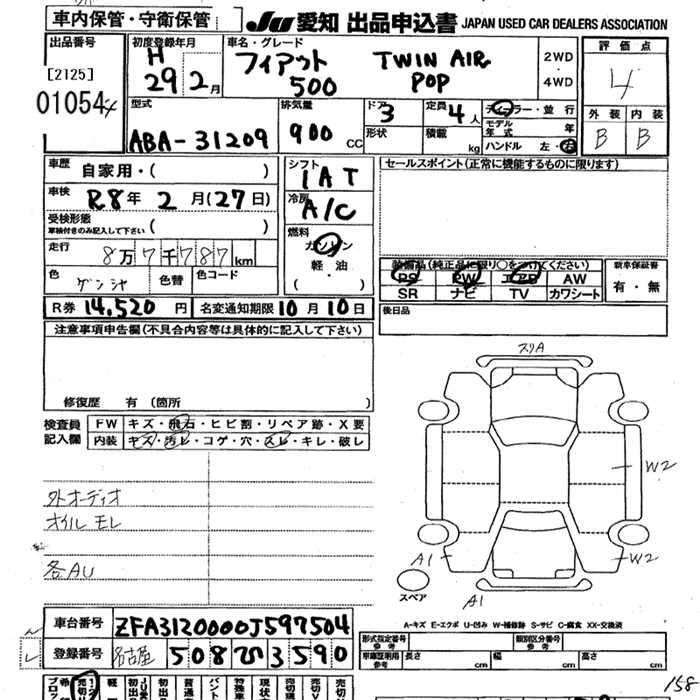 車内保管・守衛保管
JU 愛知 出品申込書 JAPAN USED CAR DEALERS ASSOCIATION
出品番号
[2125]
01054
初度登録年月
H
29 2月
車名・グレード
フィアット TWIN AIR
500 POP
2WD
・
4WD
評価点
4
外装 内装
B B
型式
ABA-31209
排気量
900 cc
ドア
3
形状
定員
4 人
積載
kg
ディーラー・並行
モデル年式 年
ハンドル 左・右
車歴
自家用・( )
車検
R8年 2月(27日)
受検形態
車検付きのみ記入して下さい ( )
走行
8万7千787km
色
ゲンシャ
色替
色コード
シフト
1AT
冷房
A/C
燃料
ガソリン
軽・油
( )
セールスポイント(正常に機能するものに限ります)
装備品(純正品に限り○をつけてください)
PS PW エアB AW
SR ナビ TV カワシート
新車保証書
有・無
後日品
R券 14,520 円
名変通知期限 10月10日
注意事項申告欄(不具合内容等は具体的に記入して下さい)
修復歴 有 (箇所 )
検査員
記入欄
FW キズ・飛石・ヒビ割・リペア跡・X要
内装 キズ・汚レ・コゲ・穴・スレ・キレ・破レ
外オーディオ
オイルモレ
各AU
スリA
W2
W2
A1
A1
スペア
A-キズ E-エクボ U-凹み W-補修跡 S-サビ C-腐食 XX-交換済
車台番号
ZFA3120000J597504
登録番号
名古屋 508 ひ 3590
型式指定番号
参考
類別区分番号
参考
車庫証明用
参考
長さ cm
幅 cm
高さ cm
158